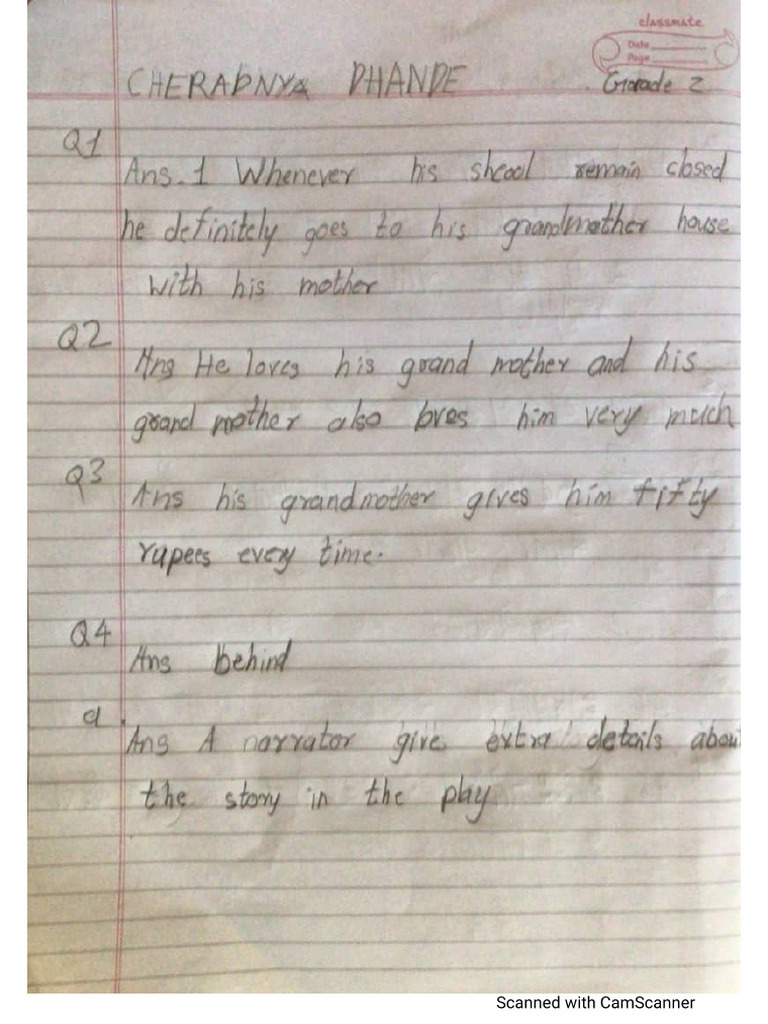 classmate
Date
Page
CHERADNYA DHANDE
Grade 2
Q1
Ans. 1 Whenever his shcool remain closed
he definitely goes to his grandmother house
with his mother
Q2
Ans He loves his grand mother and his
grand mother also loves him very much
Q3
Ans his grandmother gives him fifty
rupees every time.
Q4
Ans behind
a
Ans A narrator give extra details about
the story in the play
Scanned with CamScanner